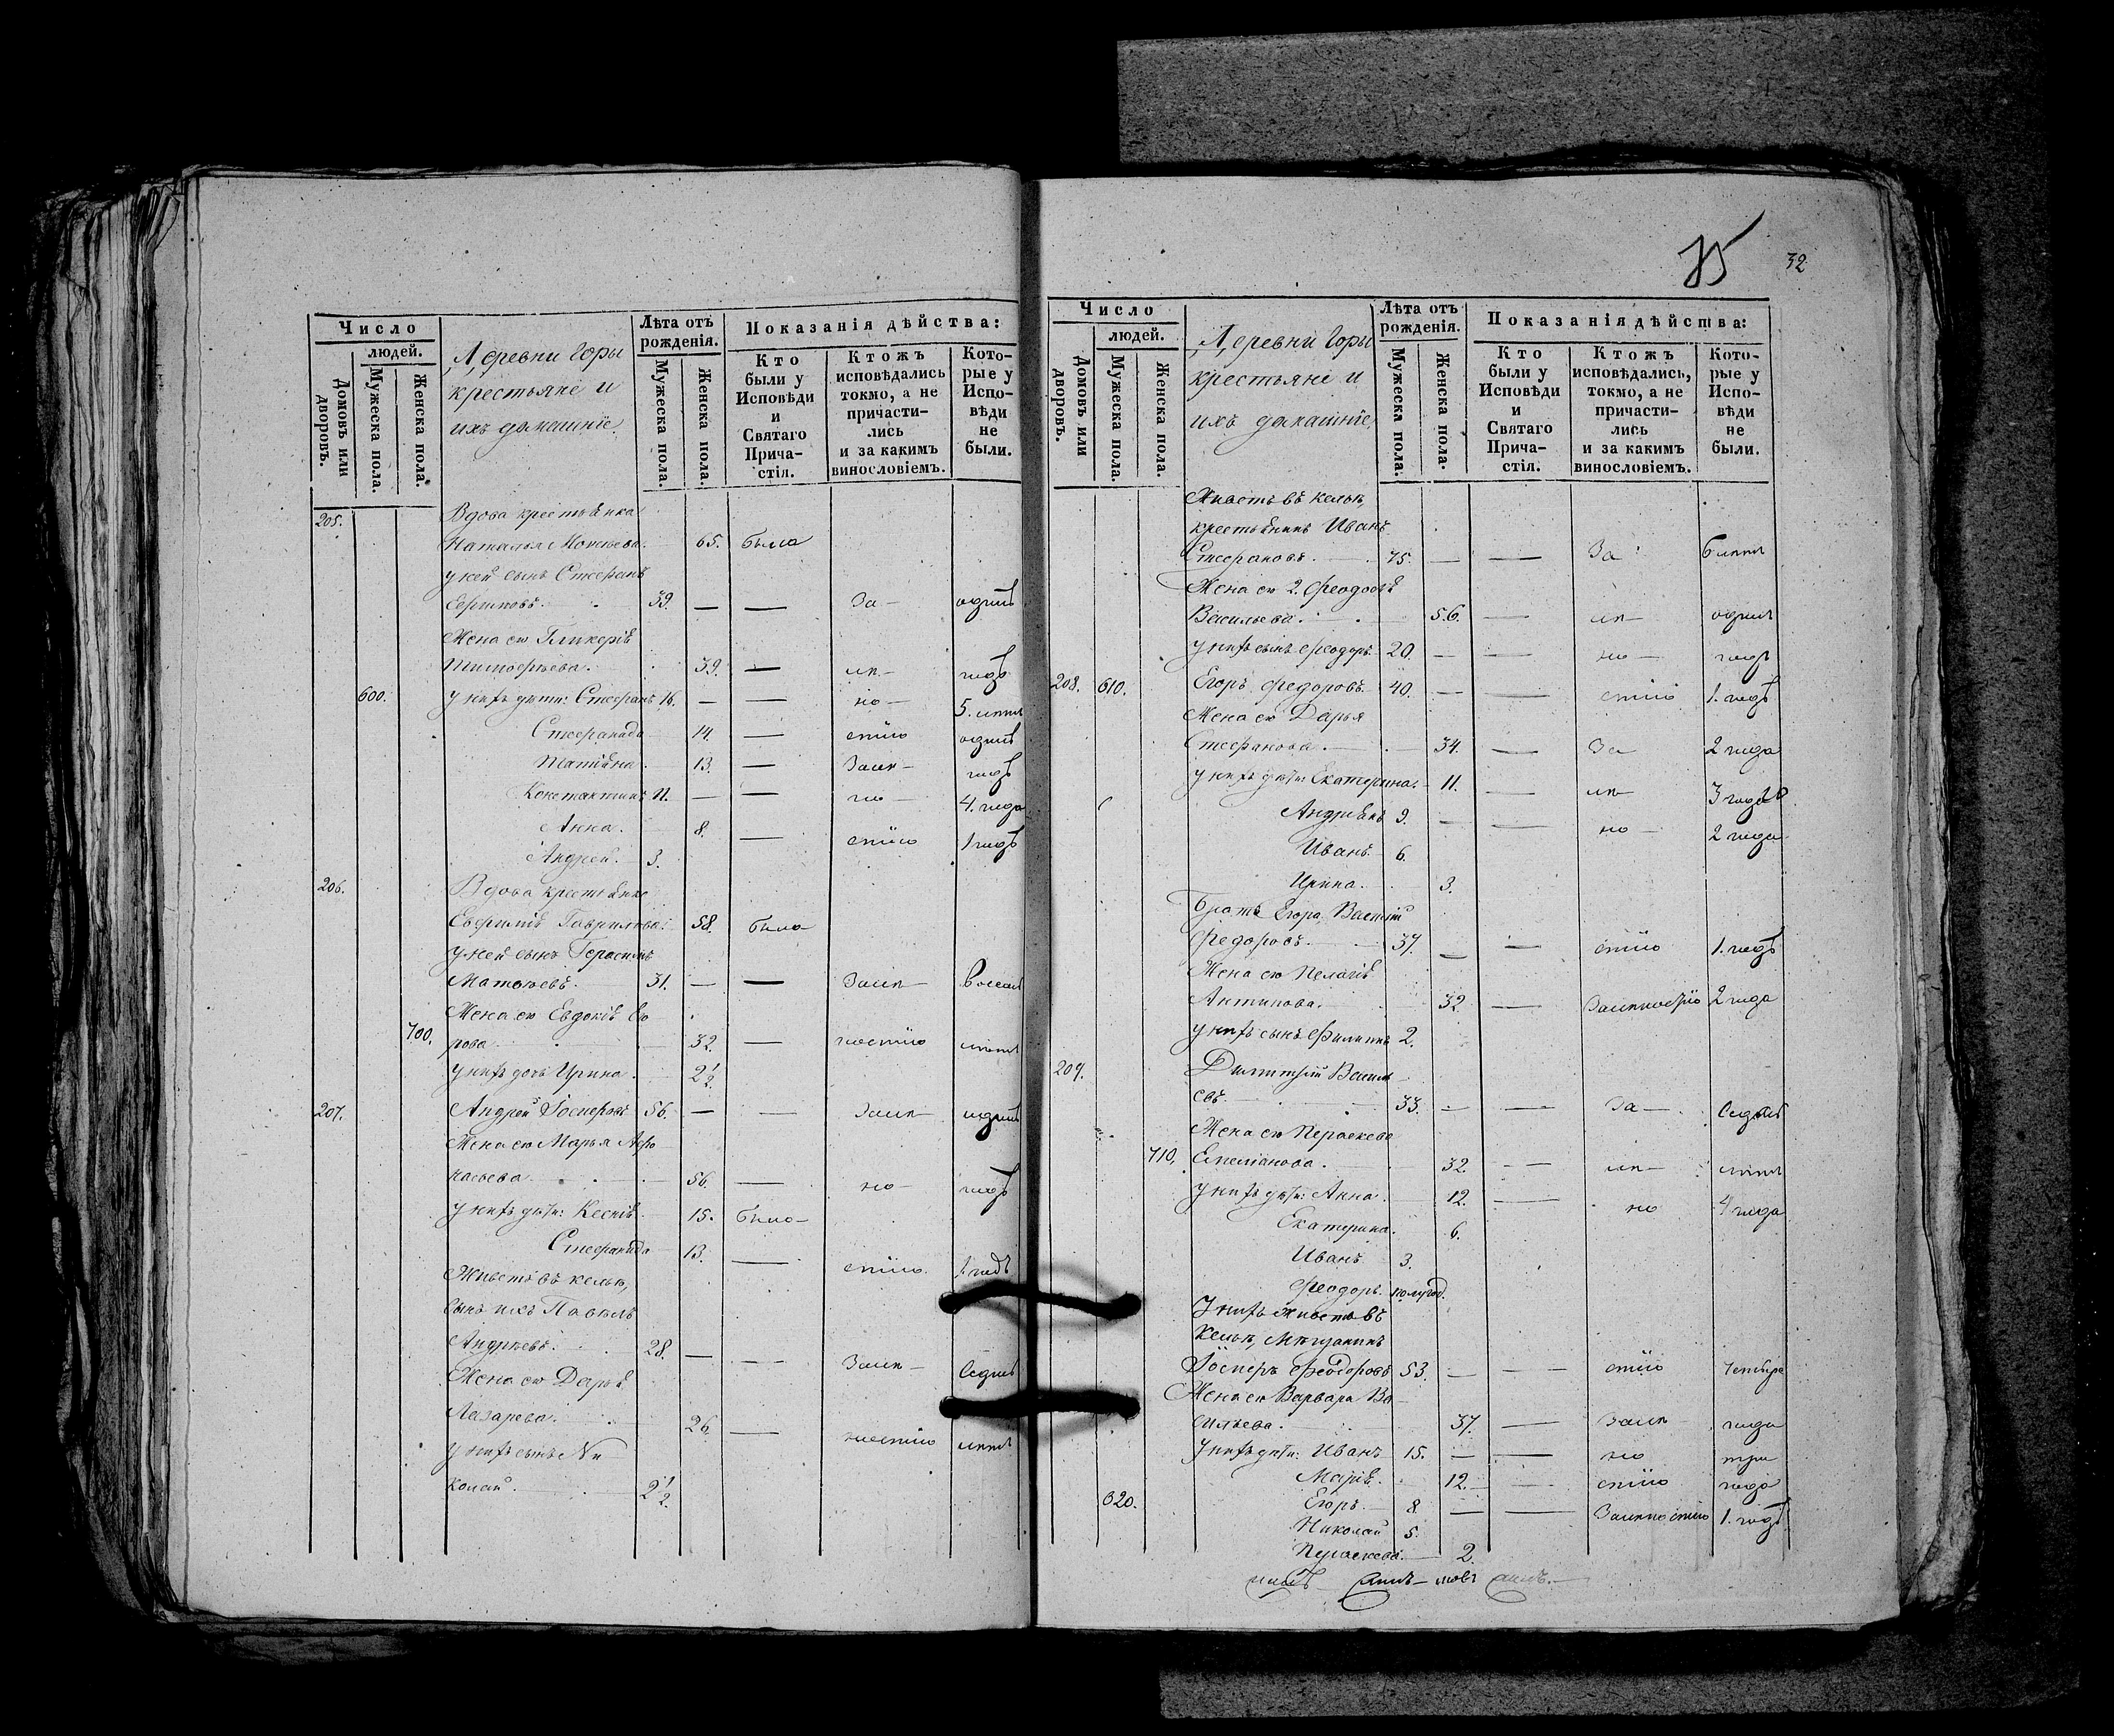 Число
людей.
Домовъ или дворовъ.
Мужеска пола.
Женска пола.
Деревни Горы
крестьяне и
ихъ домашніе.
Лѣта отъ
рожденія.
Мужеска пола.
Женска пола.
Показанія дѣйства:
Кто
были у
Исповѣди
и
Святаго
Прича-
стія.
Ктожъ
исповѣдались
токмо, а не
причасти-
лись
и за какимъ
винословіемъ.
Кото-
рые у
Испо-
вѣди
не
были.
205. Вдова крестьянка
Наталья 65. была
у ней сынъ Стефанъ
39. — — За- одинъ
Жена его Гликерія
Тимофѣева. 39. — лѣ- годъ
600. у нихъ дѣти: Стефанъ 16. — — но- 5. лѣтъ
Стефанида 14. — стію одинъ
Татіана. 13. — Залѣ- годъ
Константинъ 11. — — но- 4. года
Анна. 8. — стію 1 годъ
Андрей. 3.
206. Вдова крестьянка
Евфимія Гаврилова. 58. была
у ней сынъ Герасимъ
Матѳѣевъ. 31. — — Залѣ- восемь
Жена его Евдокія Его-
700. рова 32. — ностію лѣтъ
у нихъ дочь Ирина. 2½.
207. Андрей 56. — — Залѣ- одинъ
Жена его Марья Афо-
насьева 56. — но- годъ
у нихъ дѣти: Ксенія 15. была
Стефанида 13. — стію. 1. годъ
Живетъ въ кельѣ,
сынъ ихъ Павелъ
Андрѣевъ. 28. — — Залѣ- седмь
Жена его Дарья
Лазарева. 26. — ностію лѣтъ
у нихъ сынъ Ни-
колай. 2½.
32
Число
людей.
Домовъ или дворовъ.
Мужеска пола.
Женска пола.
Деревни Горы
крестьяне и
ихъ домашніе
Лѣта отъ
рожденія.
Мужеска пола.
Женска пола.
Показанія дѣйства:
Кто
были у
Исповѣди
и
Святаго
Прича-
стія.
Ктожъ
исповѣдались,
токмо, а не
причасти-
лись
и за какимъ
винословіемъ.
Кото-
рые у
Испо-
вѣди
не
были.
Живетъ въ кельѣ,
крестьянинъ Иванъ
Стефановъ. 75. — — За
Жена его 2. Феодосія
Васильева. 56. — лѣ- одинъ
у нихъ сынъ Феодоръ 20. — — но- годъ
208. 610. Егоръ Федоровъ. 40. — — стію 1. годъ
Жена его Дарья
Стефанова. 34. — За 2 года
у нихъ дѣти: Екатерина. 11. — лѣ- 3 года
Андріянъ 9. — — но- 2 года
Иванъ 6.
Ирина. 3.
Братъ Егора, Василій
Федоровъ 37. — — стію 1. годъ
Жена его Пелагія
Антипова. 32. — Залѣностію 2 года
у нихъ сынъ Филиппъ 2.
209. Димитрій Василь-
евъ. 33. — — За- седмь
Жена его Параскева
710. Емеліанова. 32. — лѣ- лѣтъ
у нихъ дѣти: Анна. 12. — но 4 года
Екатерина. 6.
Иванъ 3.
Феодоръ. полугод.
У нихъ живетъ въ
кельѣ, Мѣщанинъ
Феодоровъ 53. — — стію четыре
Жена его Варвара Ва-
сильева. 37. — Залѣ- года
у нихъ дѣти: Иванъ 15. — — но три
Марія. 12. — стію года
620. Егоръ 8. — — Залѣностію 1. годъ
Николай 5.
Параскева. 2.